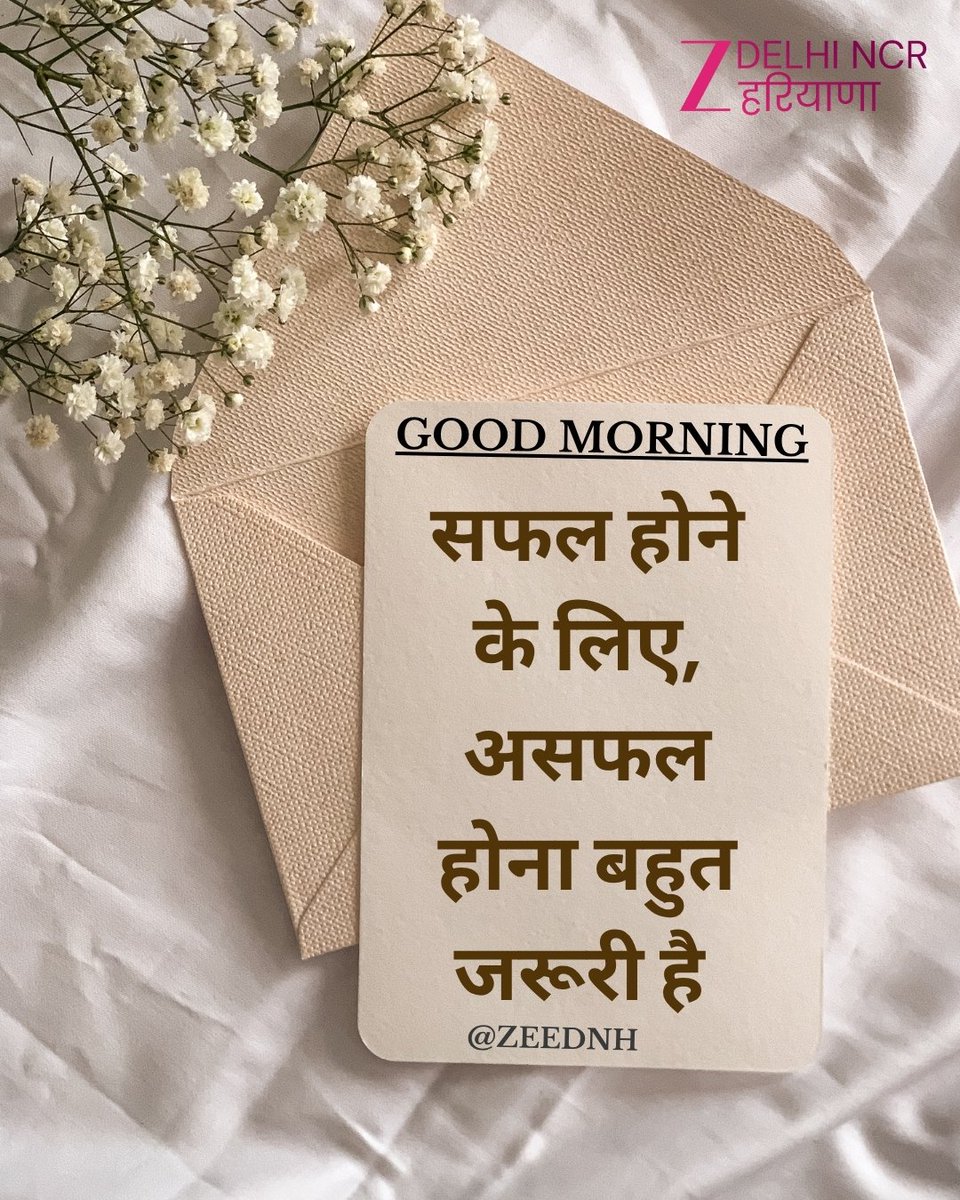 Z DELHI NCR
हरियाणा
GOOD MORNING
सफल होने
के लिए,
असफल
होना बहुत
जरूरी है
@ZEEDNH